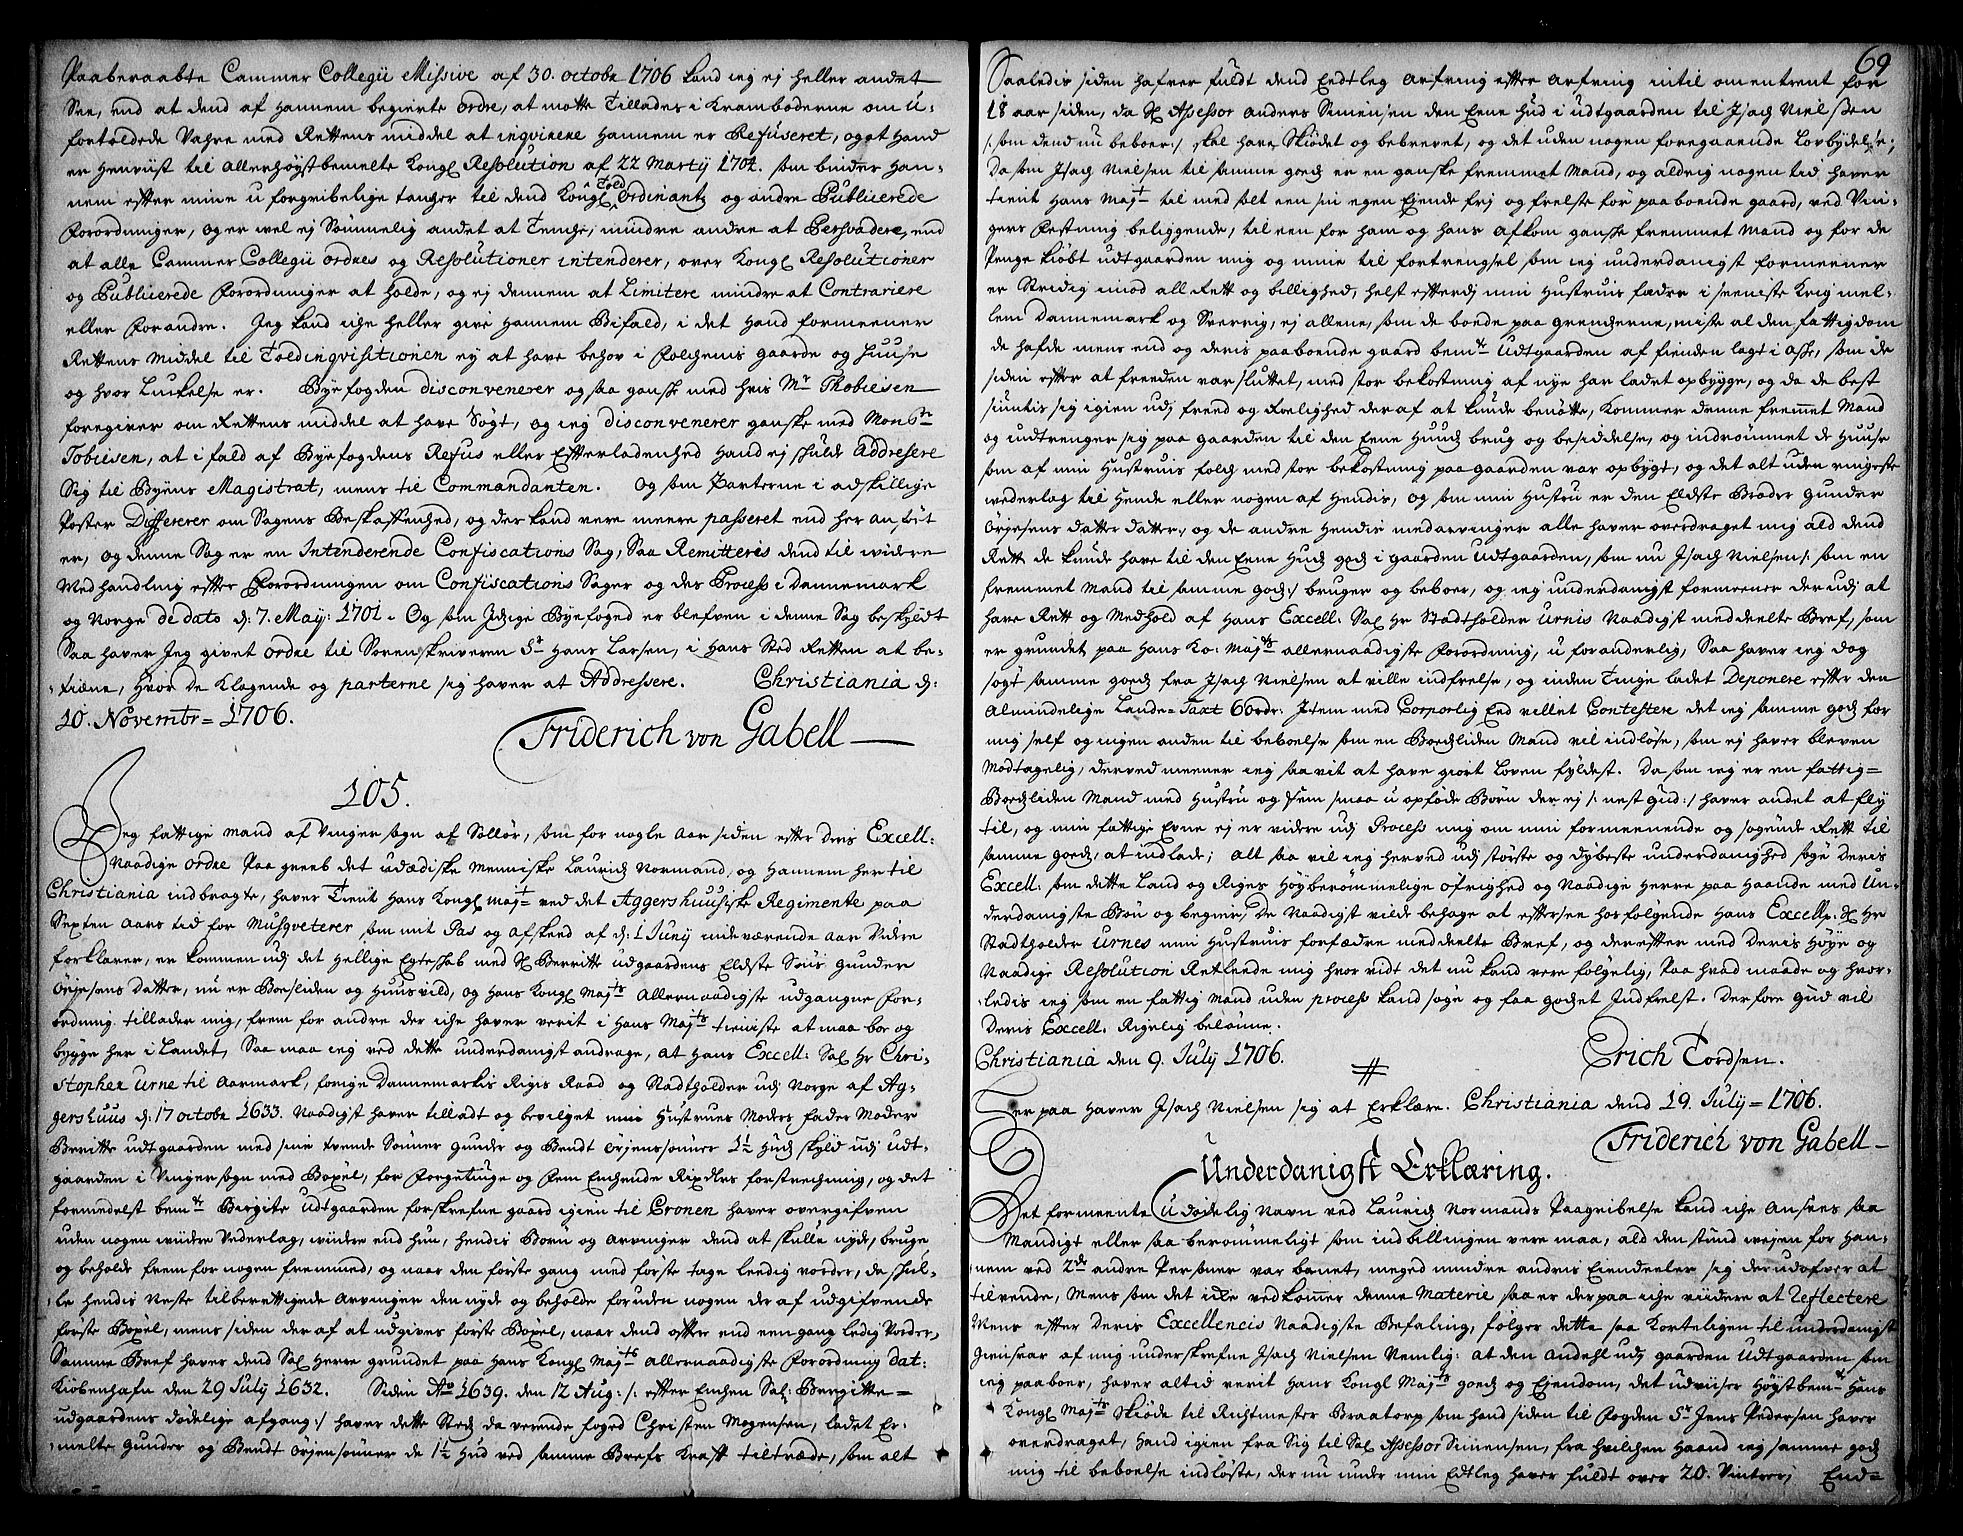 Paaberaabte Cammer Collegii Missive af 30. octobr 1706 kand ieg ej heller andet
See, end at dend af hannem begierte ordre, at motte Tillades i Kramboderne om u-
fortoldede Vahre med Rettens middel at inqvirere hannem er Refuseret, og at hand
er henviist til allerhøystbemelte Kongl Resolution af 22 Martij 1704. som binder han-
nem efter mine u forgribelige tancher til dend Kongl Told Ordinantz og andre Publicerede
Forordninger, og er vel ej Sømmelig andet at Tenche, mindre andre at Persvadere, end
at alle Cammer Collegii ordres og Resolutioner intenderer, over Kongl Resolutioner
og Publicerede Forordninger at holde, og ej dennem at Limitere mindre at Contrariere
eller Forandre. Jeg kand iche heller give hannem Bifald, i det hand formeener
Rettens Middel til Toldinqvisitionen ey at have behov i Folchenis gaarde og Huuse
og hvor Luckelse er. Byefogden disconvenerer og saa ganske med hvis Mr Thobiesen
foregiver om Rettens middel at have Søgt, og ieg disconvenerer ganske med Monsr
Tobiesen, at i fald af Byefogdens Refus eller Efterladenhed hand ej skulde Addressere
Sig til Byens Magistrat, mens til Commandanten. Og som Parterne i adskillige
Poster Differerer om Sagens Beskaffenhed, og der kand vere meere passeret end her anført
er, og denne Sag er en Intenderende Confiscations Sag, Saa Remitteris dend til widere
Medhandling efter Forordningen om Confiscations Sager og des Process i Dannemark
og Norge de dato d: 7. May: 1701. Og som Itzige Byefoged er blefven i denne Sag beskyldt
Saa haver Jeg givet ordre til Sorenskriveren Sr Hans Larsen, i hans Sted Retten at be-
tiene, hvor De Klagende og parterne sig haver at Addressere. Christiania d:
10. Novembr = 1706.
Friderich von Gabell
105.
Jeg fattige mand af Vinger sogn af Solløer, som for nogle aar siden efter deris Excell:
Naadige ordre Paa greeb det udædiske Menniske Laurids Normand, og hannem her til
Christiania indbragte, haver Tient Hans Kongl Majt ved det Aggershuusiske Regimente paa
Sexten aars tid for Musqveterer som mit Pas og afskeed af d: 1 Junij indeværende aar Videre
forklarer, er kommen udj det hellige Egteskab med Sl Berritte udgaardens Eldste Søns Gunder
Ørjesens datter, nu er Boesliden og Huusvild, og hans Kongl Majts allernaadigste udgangne For-
ordning tillader mig, frem for andre der iche haver verit i hans Majts tieniste at maa boe og
bygge her i Landet, Saa maa ieg ved dette underdanigst andrage, at hans Excell: Sal Hr Chri-
stopher Urne til Aarmark, forige Dannemarkis Rigis Raad og Stadtholder udj Norge af Ag-
gershuus d: 17 octobr 1633. Naadigst haver tilladt og bevilget min Hustrues Moders fader Moder
Berritte udtgaarden med sine tvende Sønner Gunder og Bendt Ørjensønner 1½ Huds skyld udj udt-
gaarden i Vinger sogn med Boxel, for Forgetinge og Fem Enchende Rixdlrs forstrechning, og det
formedelst bemte Birgite Udtgaarden forskrefne gaard igien til Cronen haver overgifven
uden nogen widere Vederlag, widere end hun, hendis Børn og Arvinger dend at skulle nyde, bruge
og beholde frem for nogen fremmed, og naar den første gang med første tage leedig vorder, da skul-
le hendis Neste tilberettigede Arvinger den nyde og beholde foruden nogen der af udgifvende
første Boxel, mens siden der af at udgives første Boxel, naar dend ofter end een gang ledig Vorder,
Samme Bref haver dend Sal Herre grundet paa hans Kongl Majts allernaadigste Forordning Dat:
Kiøbenhafn den 29 July 1632. Siden Ao 1639. den 12 Aug: /: efter Enchen Sal: Bergitte =
udgaardens dødelige afgang :/ haver dette Steds da verende foged Christen Mogensen, ladet Er-
melte Gunder og Bendt Ørjensønner de 1½ Hud ved samme Brefs Kraft tiltræde, som alt
69
Saaledis siden hafver fuldt dend Eedtleg Arfving efter Arfving intil omentrent for
18 aar siden, da Sl Assessor Anders Simensen den Eene Hud i udtgaarden til Isach Nielssen
/: som dend nu beboer :/ skal have Skiødet og bebrevet, og det uden nogen foregaaende Lovbydelse;
Da som Isach Nielsen til samme gods er en ganske fremmet Mand, og aldrig nogen tid haver
tient Hans Majt til med solt een sin egen Eyende frj og frelste for paaboende gaard, ved Vin-
gers Festning beliggende, til een for ham og hans Afkom ganske fremmet Mand og for de
Penge kiøbt udtgaarden mig og mine til fortrengsel som ieg underdanigst formeener
er Stridig imod all Rett og billighed, helst efterdj min Hustruis fædre i seeniste Krig mel-
lem Dannemark og Sverrig, ej allene, som de boede paa Grendserne, miste al den fattigdom
de hafde mens end og deris paaboende gaard bemte Udtgaarden af fienden lagt i aske, som de
siden efter at freeden var sluttet, med stor bekostning af nye har ladet opbygge, og da de best
siuntis sig igien udj freed og Roelighed der af at kunde benøtte, kommer denne fremmet Mand
og indtrenger sig paa gaarden til den Eene Huuds brug og besiddelse, og indrømmet de Huuse
som af min Hustruis folck med stor bekostning paa gaarden var opbygt, og det alt uden ringeste
vederlag til Hende eller nogen af Hendis, og som min Hustru er den Eldste Broder Gunder
Ørjesens datter datter, og de andre Hendis medarvinger alle haver overdraget mig ald dend
Rett de kunde have til den Eene Hud gods i gaarden Udtgaarden, som nu Isach Nielsen /: som en
fremmet Mand til samme gods :/ bruger og beboer, og ieg underdanigst formeener derudj at
have Rett og Medhold af Hans Excell: Sal Hr Stadtholder Urnis Naadigst meddeelte Bref, som
er grundet paa Hans Ko: Majts allernaadigste Forordning, u foranderlig, Saa haver ieg dog
søgt samme gods fra Isach Nielsen at ville indfrelse, og inden Tinge ladet Deponere efter den
Almindelige Lands-Taxt 60 rdr: Item med Corporlig Eed villet Contestere det ieg samme gods for
mig self og ingen anden til beboelse som en Boesliden Mand vil indløse, som ej haver bleven
Modtagelig, derved meener ieg saavit at have giort Loven fyldest. Da som ieg er en fattig =
Boesliden Mand med Hustru og Fem smaa u opføde Børn der ej /: nest Gud :/ haver andet at fly
til, og min fattige Evne ej er videre udj Process mig om min formeenende og søgende Rett til
samme gods, at indlade; Alt saa vil ieg herved udj største og dybeste underdanighed søge Deris
Excell: som dette Land og Rigis Høyberømmelige Øfrighed og Naadige Herre paa haande med Un-
derdanigste Bøn og begier, De Naadigst vilde behage at eftersee hosfølgende Hans Excell. Sl Hr
Stadtholder Urnes min Hustruis forfædre meddeelte Bref, og derefter med Deris Høye og
Naadige Resolution Retleede mig hvor vidt det nu kand vere følgelig, Paa hvad maade og hvor-
ledis ieg som en fattig Mand uden process kand søge og faa godset Indfrelst. Derfore Gud vil
Deris Excell. Rigelig belønne.
Christiania den 9. July 1706. Erich Tordsen.
Her paa haver Isach Nielsen sig at Erklære. Christiania dend 19. July = 1706.
Friderich von Gabell
Underdanigst Erklæring.
Det formeente Udødelig Navn ved Laurids Normands Paagribelse kand iche Ansees saa
Mandigt eller saa berømmeligt som indbillingen vere maa, ald den stund vejen for han-
nem ved 2de andre Personer var banet, meget mindre andris Eiendeeler sig derudofver at
tilvende, Mens som det iche vedkommer denne Materie saa er derpaa iche viidere at Reflectere
Mens efter Deris Excellencis Naadigste Befaling, følger dette saa Korteligen til underdanigst
Giensvar af mig underskrefne Isach Nielsen Nemlig: at den Andeel udj gaarden Udtgaarden som
ieg paaboer, haver altid verit Hans Kongl Majts gods og Eyendom, det udviiser Høystbemte Hans
Kongl Majts Skiøde til Richtmester Braatorp som hand siden til Fogden Sr Jens Pedersen haver
overdraget, hand igien fra Sig til Sal Assessor Simensen, fra hvilchen haand ieg samme gods
mig til beboelse indløste, der nu under min Edtleg haver fuldt over 20. Vintrer, End=